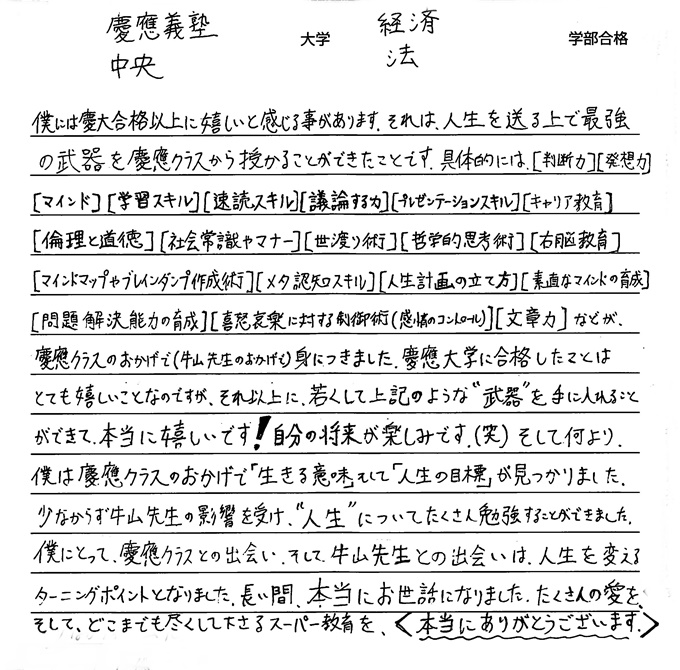 慶應義塾 大学 経済 学部合格
中央 法
僕には慶大合格以上に嬉しいと感じる事があります。それは、人生を送る上で最強
の武器を慶應クラスから授かることができたことです。具体的には、[判断力][発想力]
[マインド][学習スキル][速読スキル][議論する力][プレゼンテーションスキル][キャリア教育]
[倫理と道徳][社会常識やマナー][世渡り術][哲学的思考術][右脳教育]
[マインドマップやブレインダンプ作成術][メタ認知スキル][人生計画の立て方][素直なマインドの育成]
[問題解決能力の育成][喜怒哀楽に対する制御術(感情のコントロール)][文章力]などが、
慶應クラスのおかげで(牛山先生のおかげで)身につきました。慶應大学に合格したことは
とても嬉しいことなのですが、それ以上に、若くして上記のような"武器"を手に入れること
ができて、本当に嬉しいです!自分の将来が楽しみです。(笑)そして何より、
僕は慶應クラスのおかげで「生きる意味」そして「人生の目標」が見つかりました。
少なからず牛山先生の影響を受け、"人生"についてたくさん勉強することができました。
僕にとって、慶應クラスとの出会い、そして、牛山先生との出会いは、人生を変える
ターニングポイントとなりました。長い間、本当にお世話になりました。たくさんの愛を、
そして、どこまでも尽くして下さるスーパー教育を、<本当にありがとうございます。>